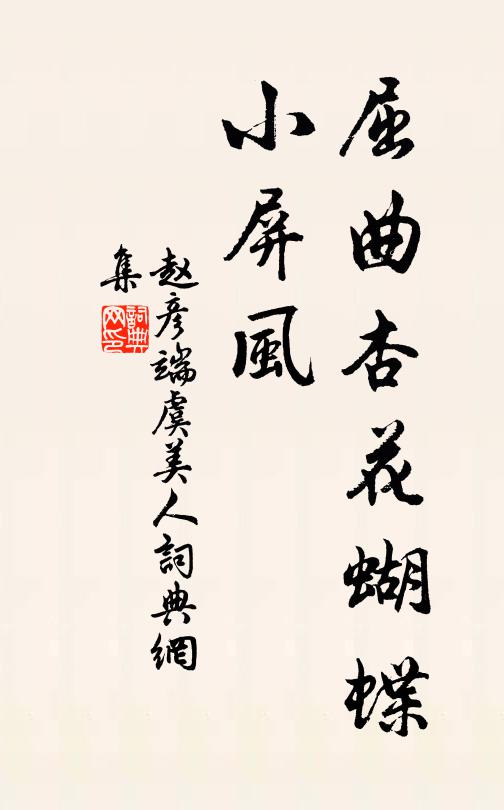 屈曲杏花蝴蝶
小屏風
赵彦端虞美人詞典網
集
詞典
网印